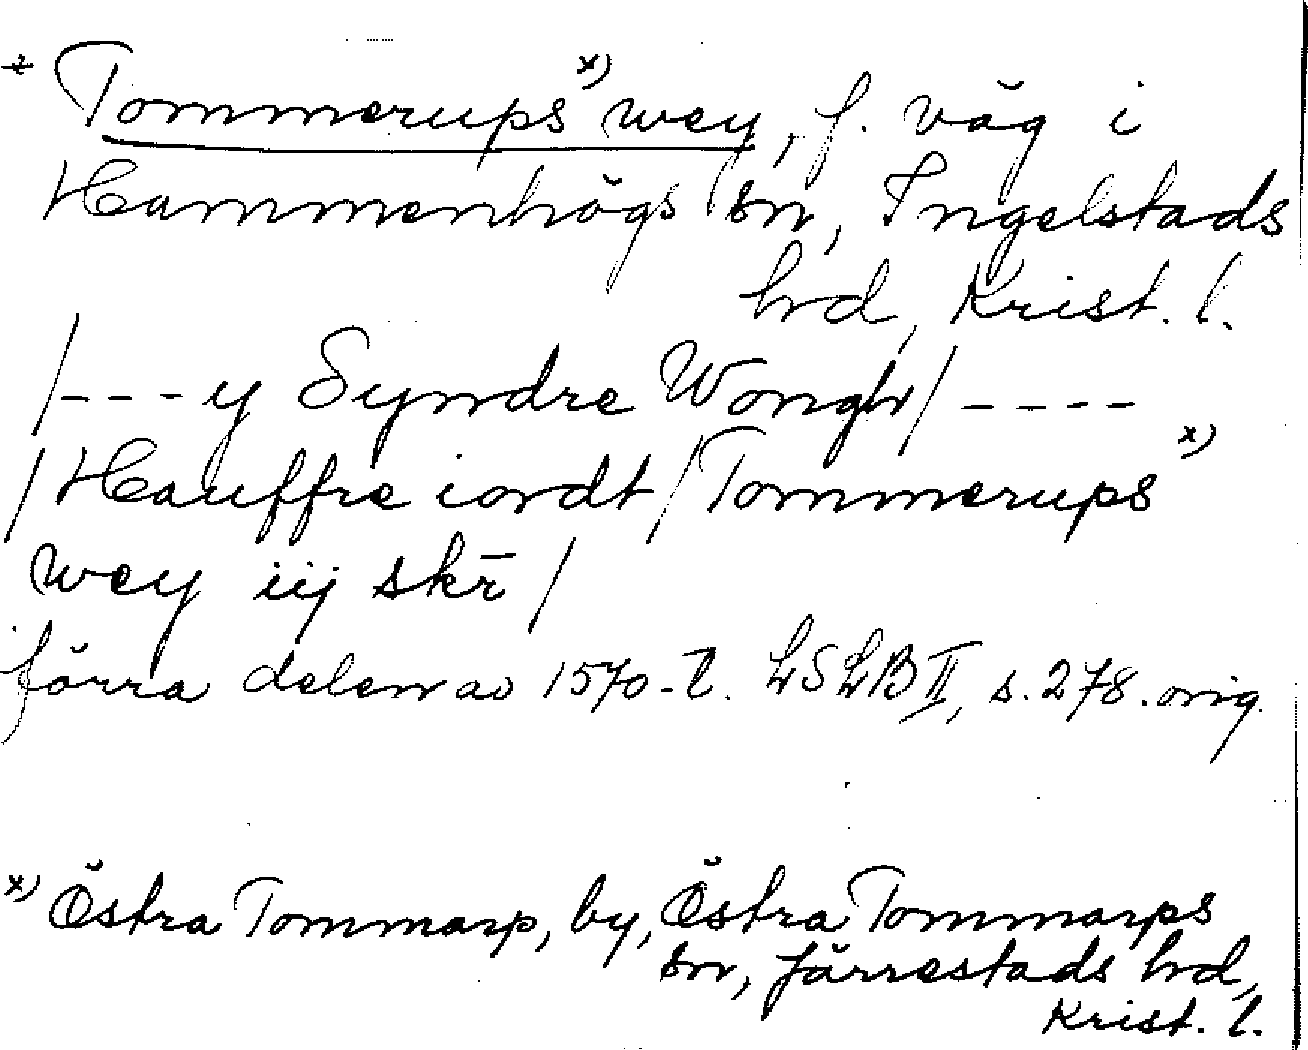 + Tommerups x) wey, f. väg i
Hammenhögs sn, Ingelstads
hrd, Krist. l.
/---y Syndre Wongh/----
/Hauffre iordt/Tommerups x)
wey iij skr̄/
förra delen av 1570-t. LSLB II, s. 278. orig.
x) Östra Tommarp, by, Östra Tommarps
sn, Järrestads hrd,
Krist. l.